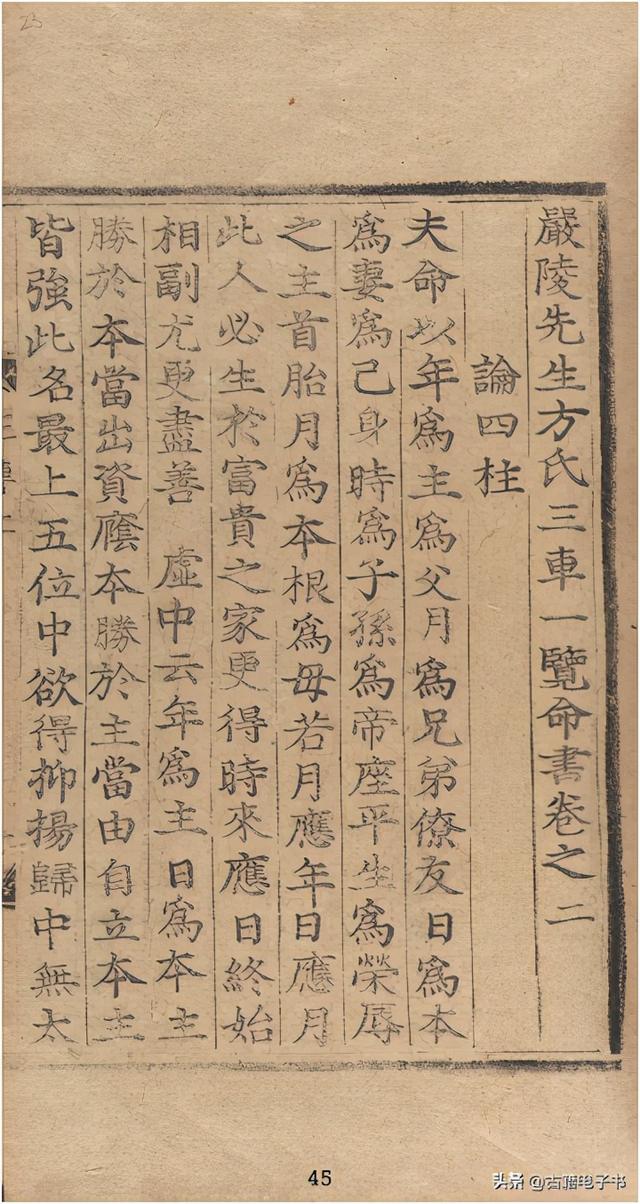 嚴陵先生方氏三車一覽命書卷之二
論四柱
夫命以年爲主爲父月爲兄弟僚友日爲本
爲妻爲己身時爲子孫爲帝座平生爲榮辱
之主首胎月爲本根爲母若月應年日應月
此人必生於富貴之家更得時來應日終始
相副尤更盡善 虛中云年爲主日爲本主
勝於本當出資廕本勝於主當由自立本主
皆強此名最上五位中欲得抑揚歸中無太
45
头条 @古籍电子书